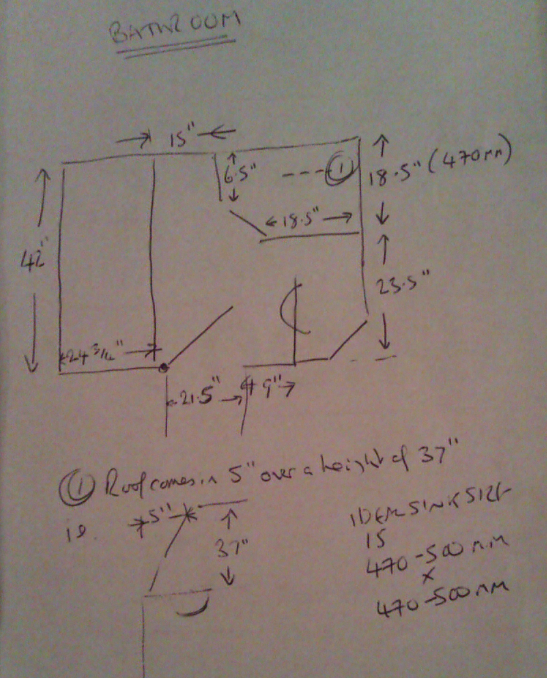 BATHROOM
15"
6.5"
①
18.5" (470mm)
18.5"
42"
23.5"
21.5"
9"
① Roof comes in 5" over a height of 37"
ie.
5"
37"
IDEAL SINK SIZE
IS
470-500 mm
x
470-500mm